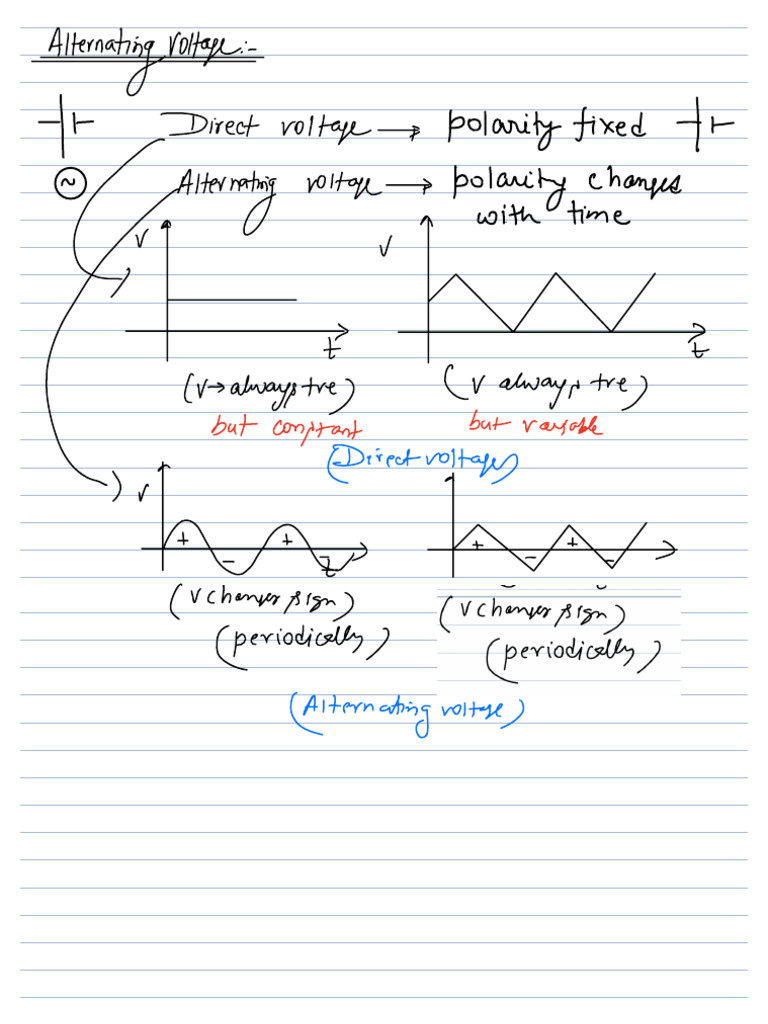 Alternating Voltage:-
Direct voltage → polarity fixed
~ Alternating voltage → polarity changes
with time
V V
t t
(V→always +ve) (V always +ve)
but constant but variable
(Direct voltage)
V
+ - + + - + -
t
(V changes sign) (V changes sign)
(periodically) (periodically)
(Alternating voltage)